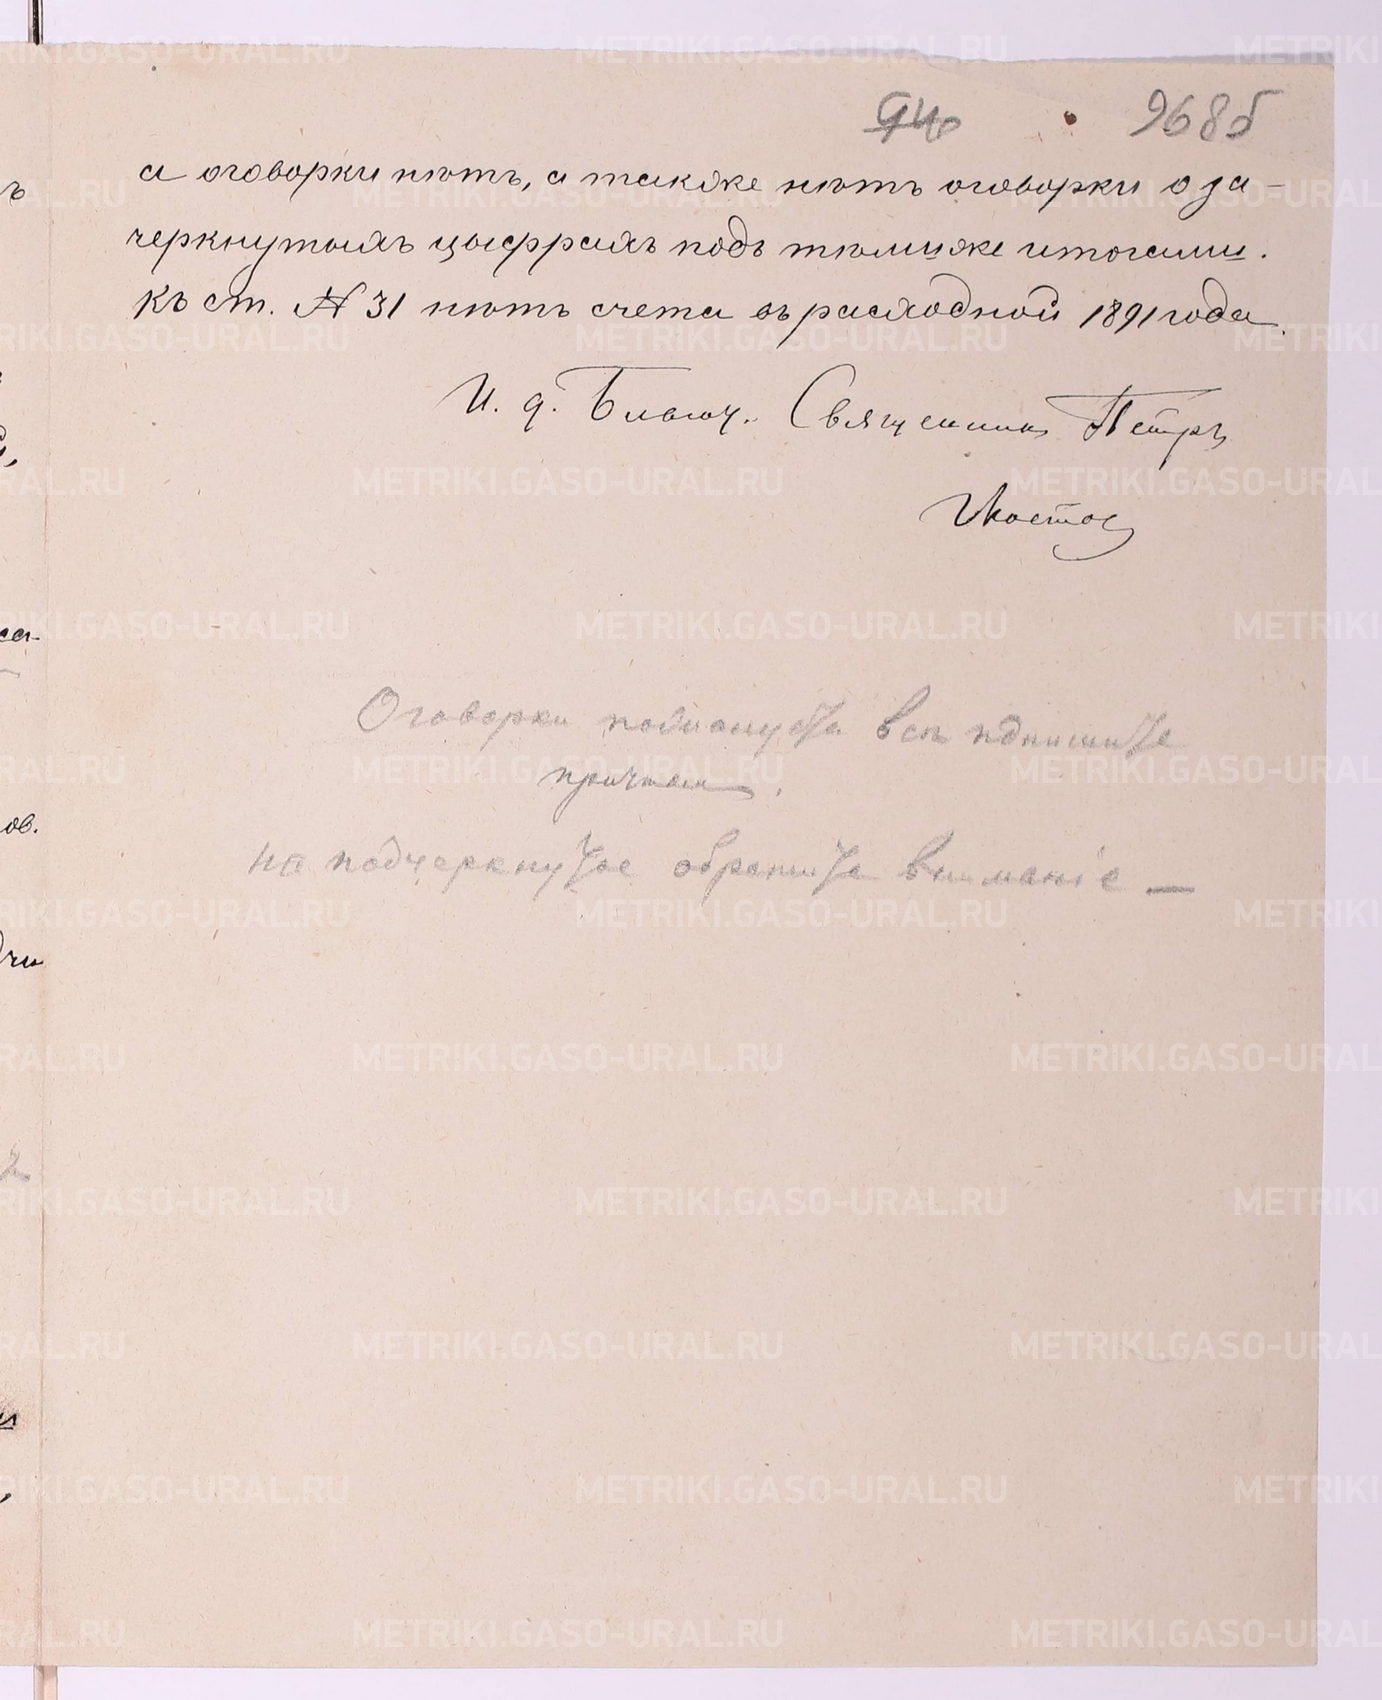 968б
а оговорки нѣтъ, а также нѣтъ оговорки о за-
черкнутыхъ цыфрахъ подъ тѣми же итогами.
Къ ст. № 31 нѣтъ счета въ расходной 1891 года.
И. д. Благоч. Священникъ Петръ
Оговорки пожалуста всѣ подпишите
причтом.
на подчеркнутое обратите вниманіе —